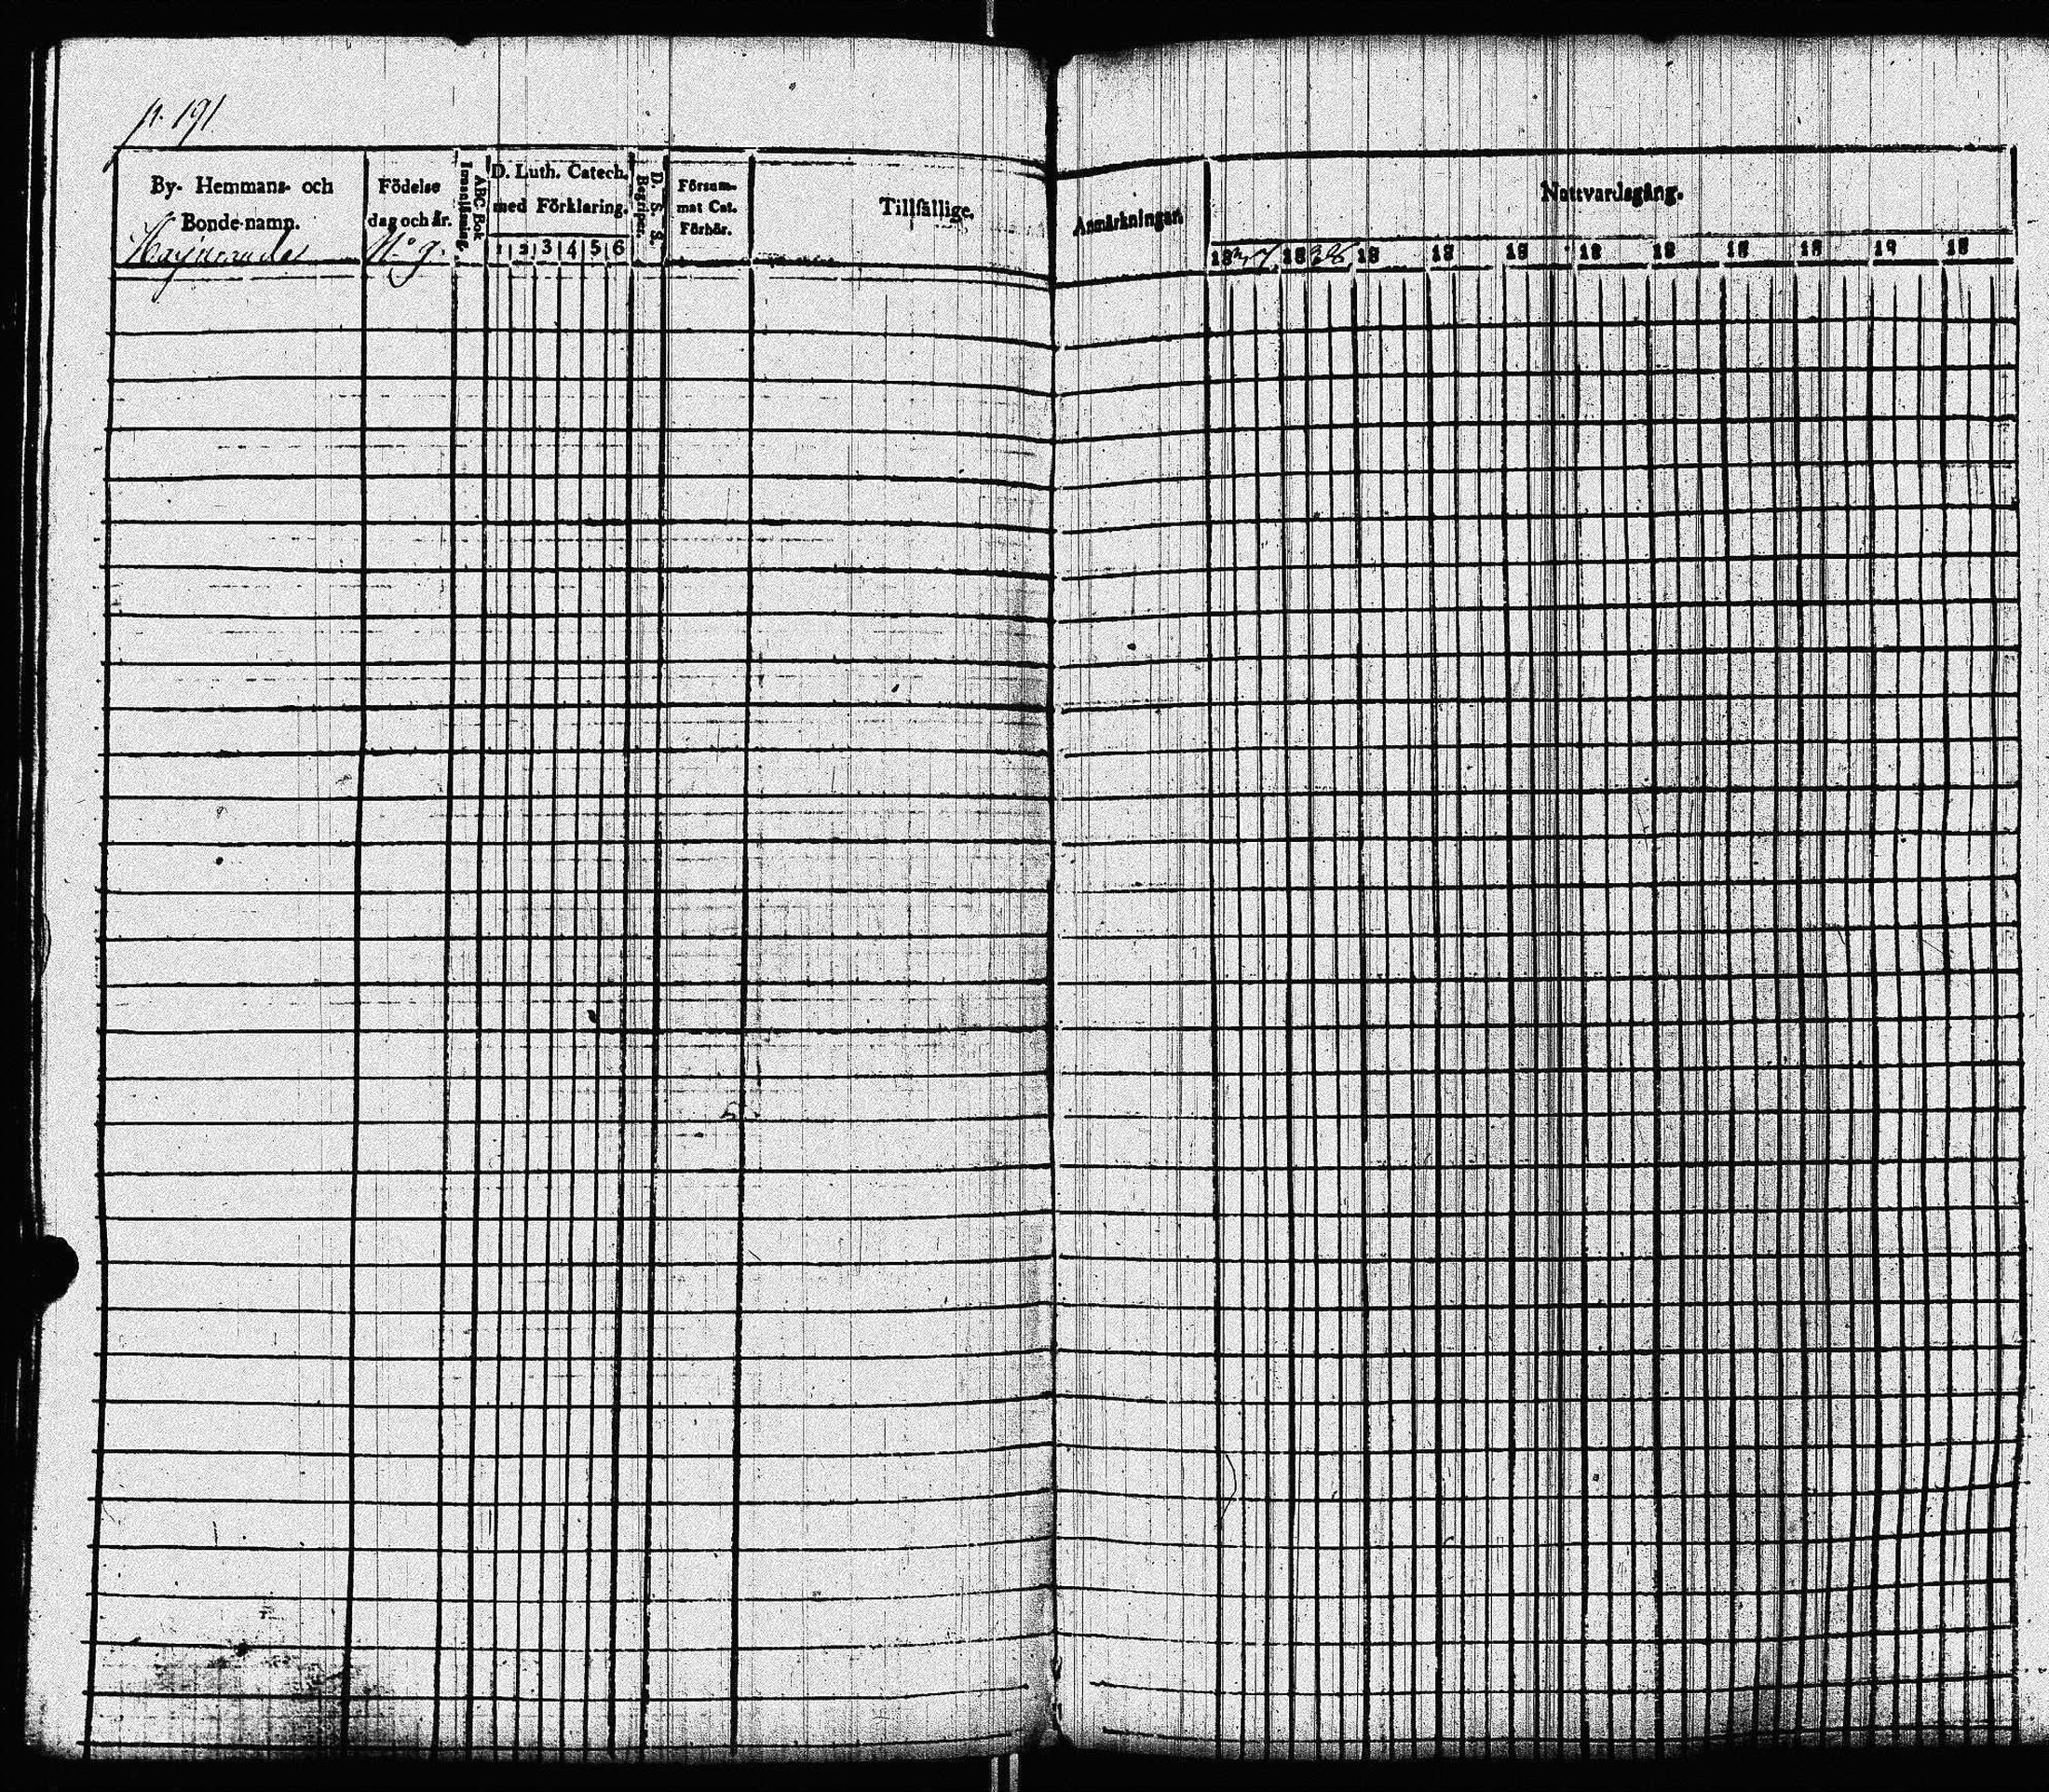 p. 191
By- Hemmans- och
Bonde-namn.
Födelse
dag och år.
N:o 9.
ABC Bok
Innanläsning.
D. Luth. Catech.
med Förklaring.
1 2 3 4 5 6
D. S. S.
Begriper.
Försum-
mat Cat.
Förhör.
Tillfällige.
Anmärkningar.
Nattvardsgång.
1827 1828 18 18 18 18 18 18 18 18 18